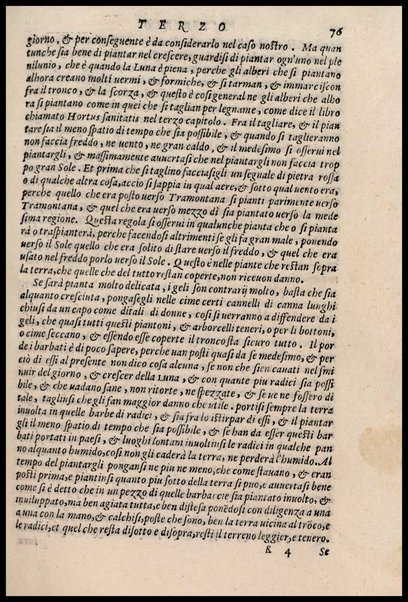 TERZO 76
giorno, & per conseguente è da considerarlo nel caso nostro. Ma quan
tunche sia bene di piantar nel crescere, guardisi di piantar ogn'uno nel ple
nilunio, che è quando la Luna è piena, perche gli alberi che si piantano
alhora creano molti uermi, & formiche, & si tarman, & immarciscon
fra il tronco, & la scorza, & questo è cosi general ne gli alberi che alho
ra si piantano come in quei che si taglian per legname, come dice il libro
chiamato Hortus sanitatis nel terzo capitolo. Fra il tagliare, & il pian
tare sia il meno spatio di tempo che sia possibile, & quando si taglieranno
non faccia freddo, ne uento, ne gran caldo, & il medesimo si osserui nel
piantargli, & massimamente auuertasi che nel piantargli non faccia trop
po gran Sole. Et prima che si taglino facciasigli un segnale di pietra rossa
o di qualche altra cosa, accio si sappia in qual aere, & sotto qual uento era,
perche quello che era posto uerso Tramontana si pianti parimente uerso
Tramontana, & quel che era uerso mezzo dì sia piantato uerso la mede
sima regione. Questa regola si osserui in qualunche pianta che o si pianta
rà o traspianterà, perche facendosi altrimenti se gli fa gran male, ponendo
uerso il Sole quello che era solito di stare uerso il freddo, & quel che era
usato nel freddo porlo uerso il Sole. Questo è nelle piante che restan sopra
la terra, che quelle che del tutto restan coperte, non riceuon danno.
Se sarà pianta molto delicata, i geli son contrarij molto, basta che sia
alquanto cresciuta, pongasegli nelle cime certi cannelli di canna lunghi
chiusi da un capo come ditali di donne, cosi si uerranno a diffendere da i
geli, che quasi tutti questi piantoni, & arborcelli teneri, o per li bottoni,
o cime seccano, & essendo esse coperte il tronco sta sicuro tutto. Il por
de i barbati è di poco sapere, perche uan posti quasi da se medesimo, & per
ciò di essi al presente non dico cosa alcuna, se non che sien cauati nel smi
nuir del giorno, & crescer della Luna, & con quante piu radici sia possi
bile, & che uadano sane, non ritorte, ne spezzate, & se ue ne fossero di
tale, taglinsi che gli fan maggior danno che utile. portisi sempre la terra
inuolta in quelle barbe di radici, & sia fra lo istirpar di essi, & il piantar
gli il meno spatio di tempo che sia possibile, & se han da esser questi bar
bati portati in paesi, & luoghi lontani inuoltinsi le radici in qualche pan
no alquanto humido, così non gli caderà la terra, ne perderà l'humido. Al
tempo del piantargli pongansi ne piu ne meno, che come stauano, & eran
posti prima, e piantinsi quanto piu sotto della terra si puo, e auuertasi bene
come si è detto che in un pezzo di quelle barbate sia piantato inuolto, &
inuiluppato, ma ben agiata tutta, e ben distesa ponēdosi con diligenza a una
a una con la mano, & calchisi, poste che sono, ben la terra uicina al trōco, e
le radici, et quel che resta di sotto e di sopra, resti il terreno leggier, e tenero.
K 4 Se